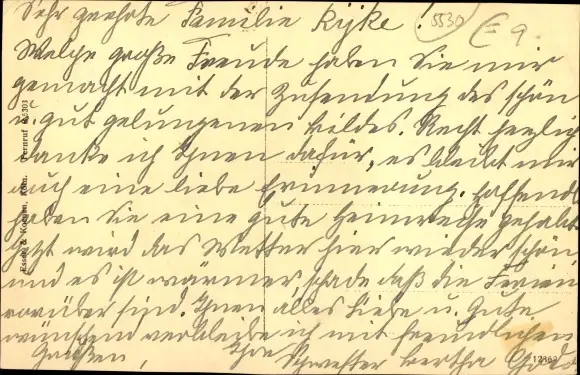 Sehr geehrte Familie Rijke!
5530
E 9.
Welche große Freude haben Sie mir
gemacht mit der Zusendung des schön
u. gut gelungenen Bildes. Recht herzlich
danke ich Ihnen dafür, es bleibt mir
auch eine liebe Erinnerung. Hoffendl.
haben Sie eine gute Heimreise gehabt
Jetzt wird das Wetter hier wieder schön
und es ist wärmer, schade daß die Ferien
vorüber sind. Ihnen alles Liebe u. Gute
wünschend verbleibe ich mit freundlichen
Grüßen, Ihre Schwester Bertha
Köln. Fernruf